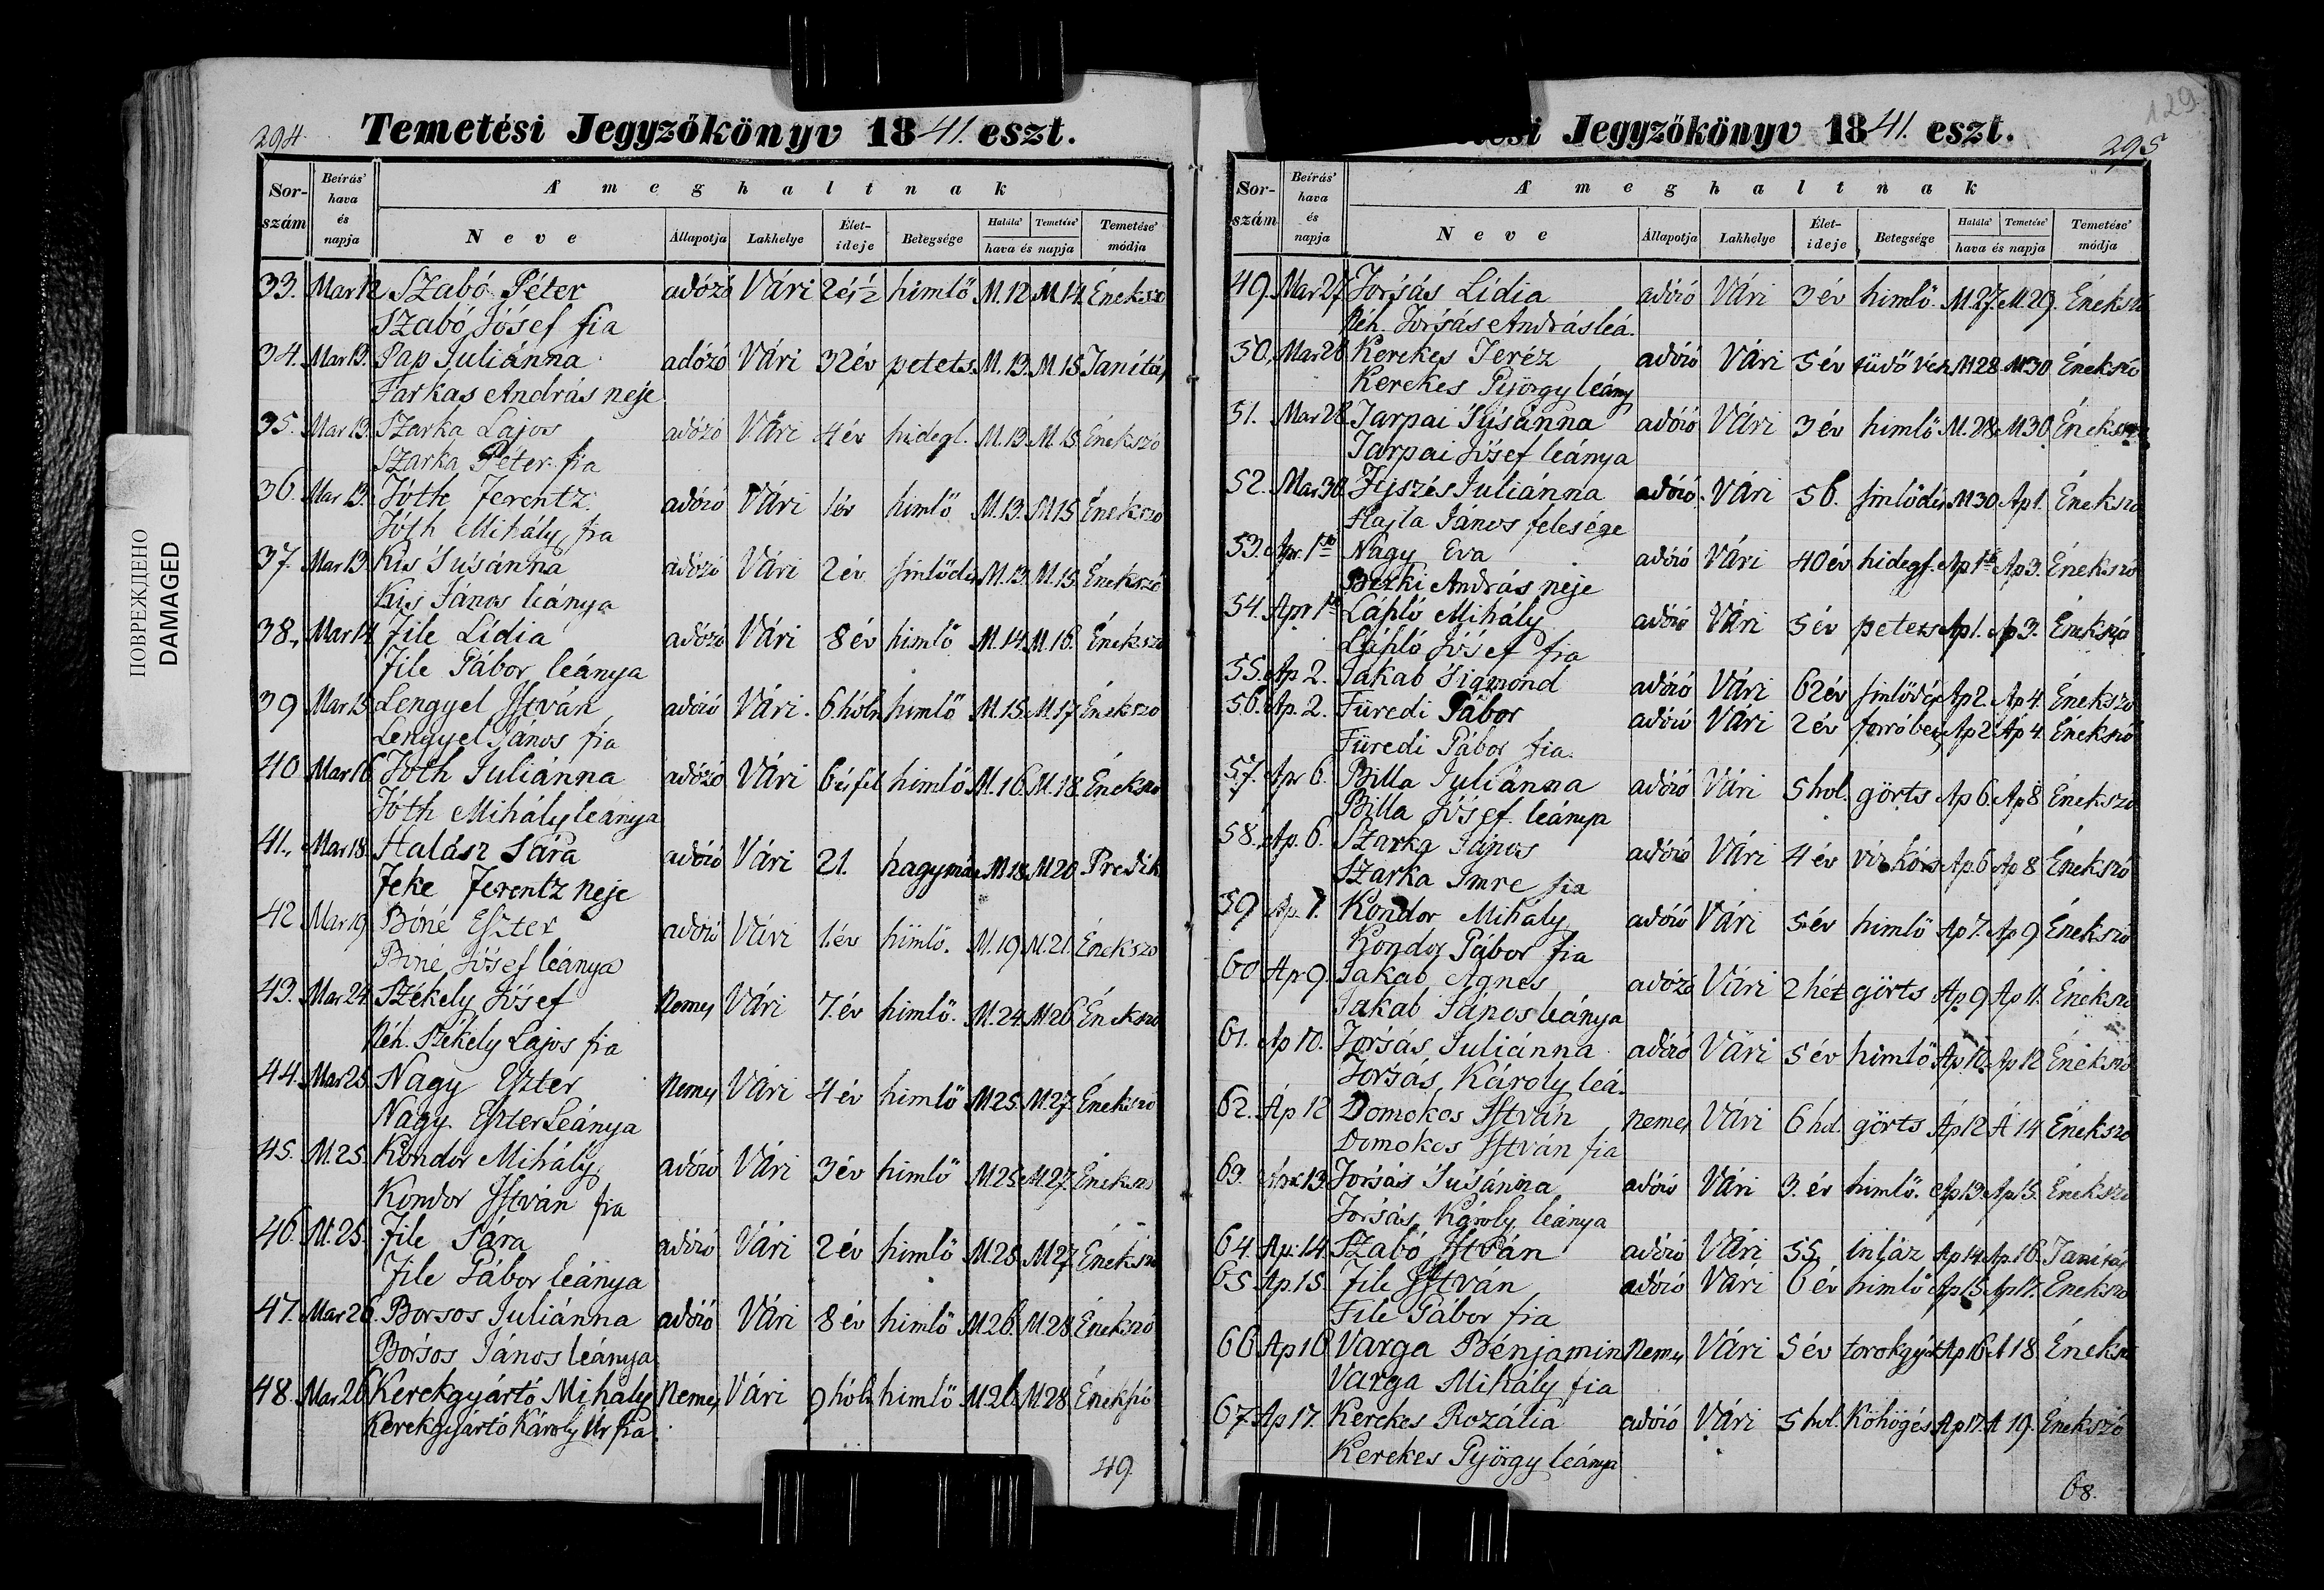 294.
Temetési Jegyzőkönyv 1841. eszt.
Sor-szám Beírás' hava és napja A' meghaltnak
Neve Állapotja Lakhelye Élet-ideje Betegsége Halála' Temetése' hava és napja Temetése' módja
33. Mar 12 Szabó Péter adózó Vári 2 és 1/2 himlő M. 12. M 14. Éneksz
Szabó Jósef fia
34. Mar 13. Pap Juliánna adózó Vári 32 év petets. M. 13. M. 15 Tanítás
Farkas András neje
35. Mar 13. Szarka Lajos adózó Vári 4 év hidegl. M. 13. M. 15. Énekszó
Szarka Péter fia
36. Mar 13. Tóth Ferentz adózó Vári 1 év himlő M. 13. M 15 Énekszo
Tóth Mihály fia
37. Mar 13. Kis Susánna adózó Vári 2 év M. 13. M. 15. Énekszó
Kis János leánya
38. Mar 14. File Lídia adózó Vári 8 év himlő M. 14. M. 16. Éneksz
File Gábor leánya
39 Mar 15. Lengyel István adózó Vári. 6. hóln. himlő M. 15. M. 17 Énekszo
Lengyel János fia
40. Mar 16. Tóth Juliánna adózó Vári 6 és fél himlő M. 16. M. 18. Énekszo
Tóth Mihály leánya
41. Mar 18. Halász Sára adózó Vári 21. hagymá M 18. M 20. Predik
Feke Ferentz neje
42 Mar 19 Biné Eszter adózó Vári 1. év himlő. M. 19. M. 21. Énekszo
Biné Jósef leánya
43. Mar 24. Székely Jósef Nemes Vári 7. év himlő. M. 24. M 26 Énekszo
Néh. Székely Lajos fia
44. Mar 25. Nagy Eszter Nemes Vári 4 év himlő M 25. M. 27. Énekszo
Nagy Eszter Leánya
45. M. 25. Kondor Mihály adózó Vári 3 év himlő M 25. M. 27. Éneksz
Kondor István fia
46. M. 25. File Sára adózó Vári 2 év himlő M. 25. M 27. Éneksz
File Gábor leánya
47. Mar 26. Borsos Juliánna adózó Vári 8 év himlő M. 26. M. 28. Énekszó
Borsos János leánya
48. Mar 26 Kerekgyártó Mihály Nemes Vári 9 hóln himlő M. 26. M. 28. Énekszó
Kerekgyártó Károly Úr fia
49.
129
295
ési Jegyzőkönyv 1841. eszt.
Sor-szám Beírás' hava és napja A' meghaltnak
Neve Állapotja Lakhelye Élet-ideje Betegsége Halála' Temetése' hava és napja Temetése' módja
49. Mar 27. Forsás Lídia adózó Vári 3 év himlő. M. 27. M. 29. Éneksz
Néh. Forsás András leá.
50. Mar 28 Kerekes Teréz adózó Vári 5 év tüdő vész M 28. M 30 Énekszó
Kerekes György leány
51. Mar 28. Tarpai Susánna adózó Vári 3 év himlő M. 28. M 30 Éneksz
Tarpai Jósef leánya
52. Mar 30. Juliánna adózó Vári 56. M 30. Ap 1. Énekszo
Hajla János felesége
53. Apr. 1ső Nagy Eva adózó Vári 40 év hidegl. Ap 1ső Ap 3. Énekszó
Bezki András neje
54. Apr 1ső László Mihály adózó Vári 5 év petets Ap 1. Ap 3. Énekszó
László Jósef fia
55. Ap 2. Jakab Sigmond adózó Vári 62 év Ap 2. Ap 4. Énekszo
56. Ap. 2. Füredi Gábor adózó Vári 2 év forróbet Ap 2. Áp 4. Énekszó
Füredi Gábor fia.
57. Apr 6. Billa Juliánna adózó Vári 5 hol. görts Ap 6. Ap 8 Énekszo
Billa Jósef leánya
58. Ap. 6. Szarka János adózó Vári 4 év viz kór Ap. 6 Ap 8 Énekszó
Szarka Imre fia
59 Ap. 7. Kondor Mihály adózó Vári 5 év himlő Ap 7. Ap 9 Énekszó
Kondor Gábor fia
60 Ap 9. Jakab Ágnes adózó Vári 2 hét görts Ap 9 Ap 11. Éneksz
Jakab János leánya
61. Ap 10. Forsás Juliánna adózó Vári 5 év himlő Ap 10. Ap 12 Énekszó
Forsás Károly leá.
62. Áp 12 Domokos István Nemes Vári 6 hol. görts Áp 12 Á 14 Énekszo
Domokos István fia
63. Apr 13. Forsás Susánna adózó Vári 3. év himlő. Ap 13. Ap 15. Éneksz
Forsás Károly leánya
64. Ap: 14. Szabó István adózó Vári 55, inláz Ap 14. Ap. 16. Tanítás
65 Ap. 15. File István adózó Vári 6 év himlő Ap 15. Ap 17. Énekszo
File Gábor fia
66 Ap 16 Varga Bénjamin Nemes Vári 5 év torokgy Ap 16 A 18. Éneksz
Varga Mihály fia
67. Ap 17. Kerekes Rozália adózó Vári 5 hol. Köhögés Ap 17. A 19. Énekszó
Kerekes György leánya
68.
ПОВРЕЖДЕНО
DAMAGED